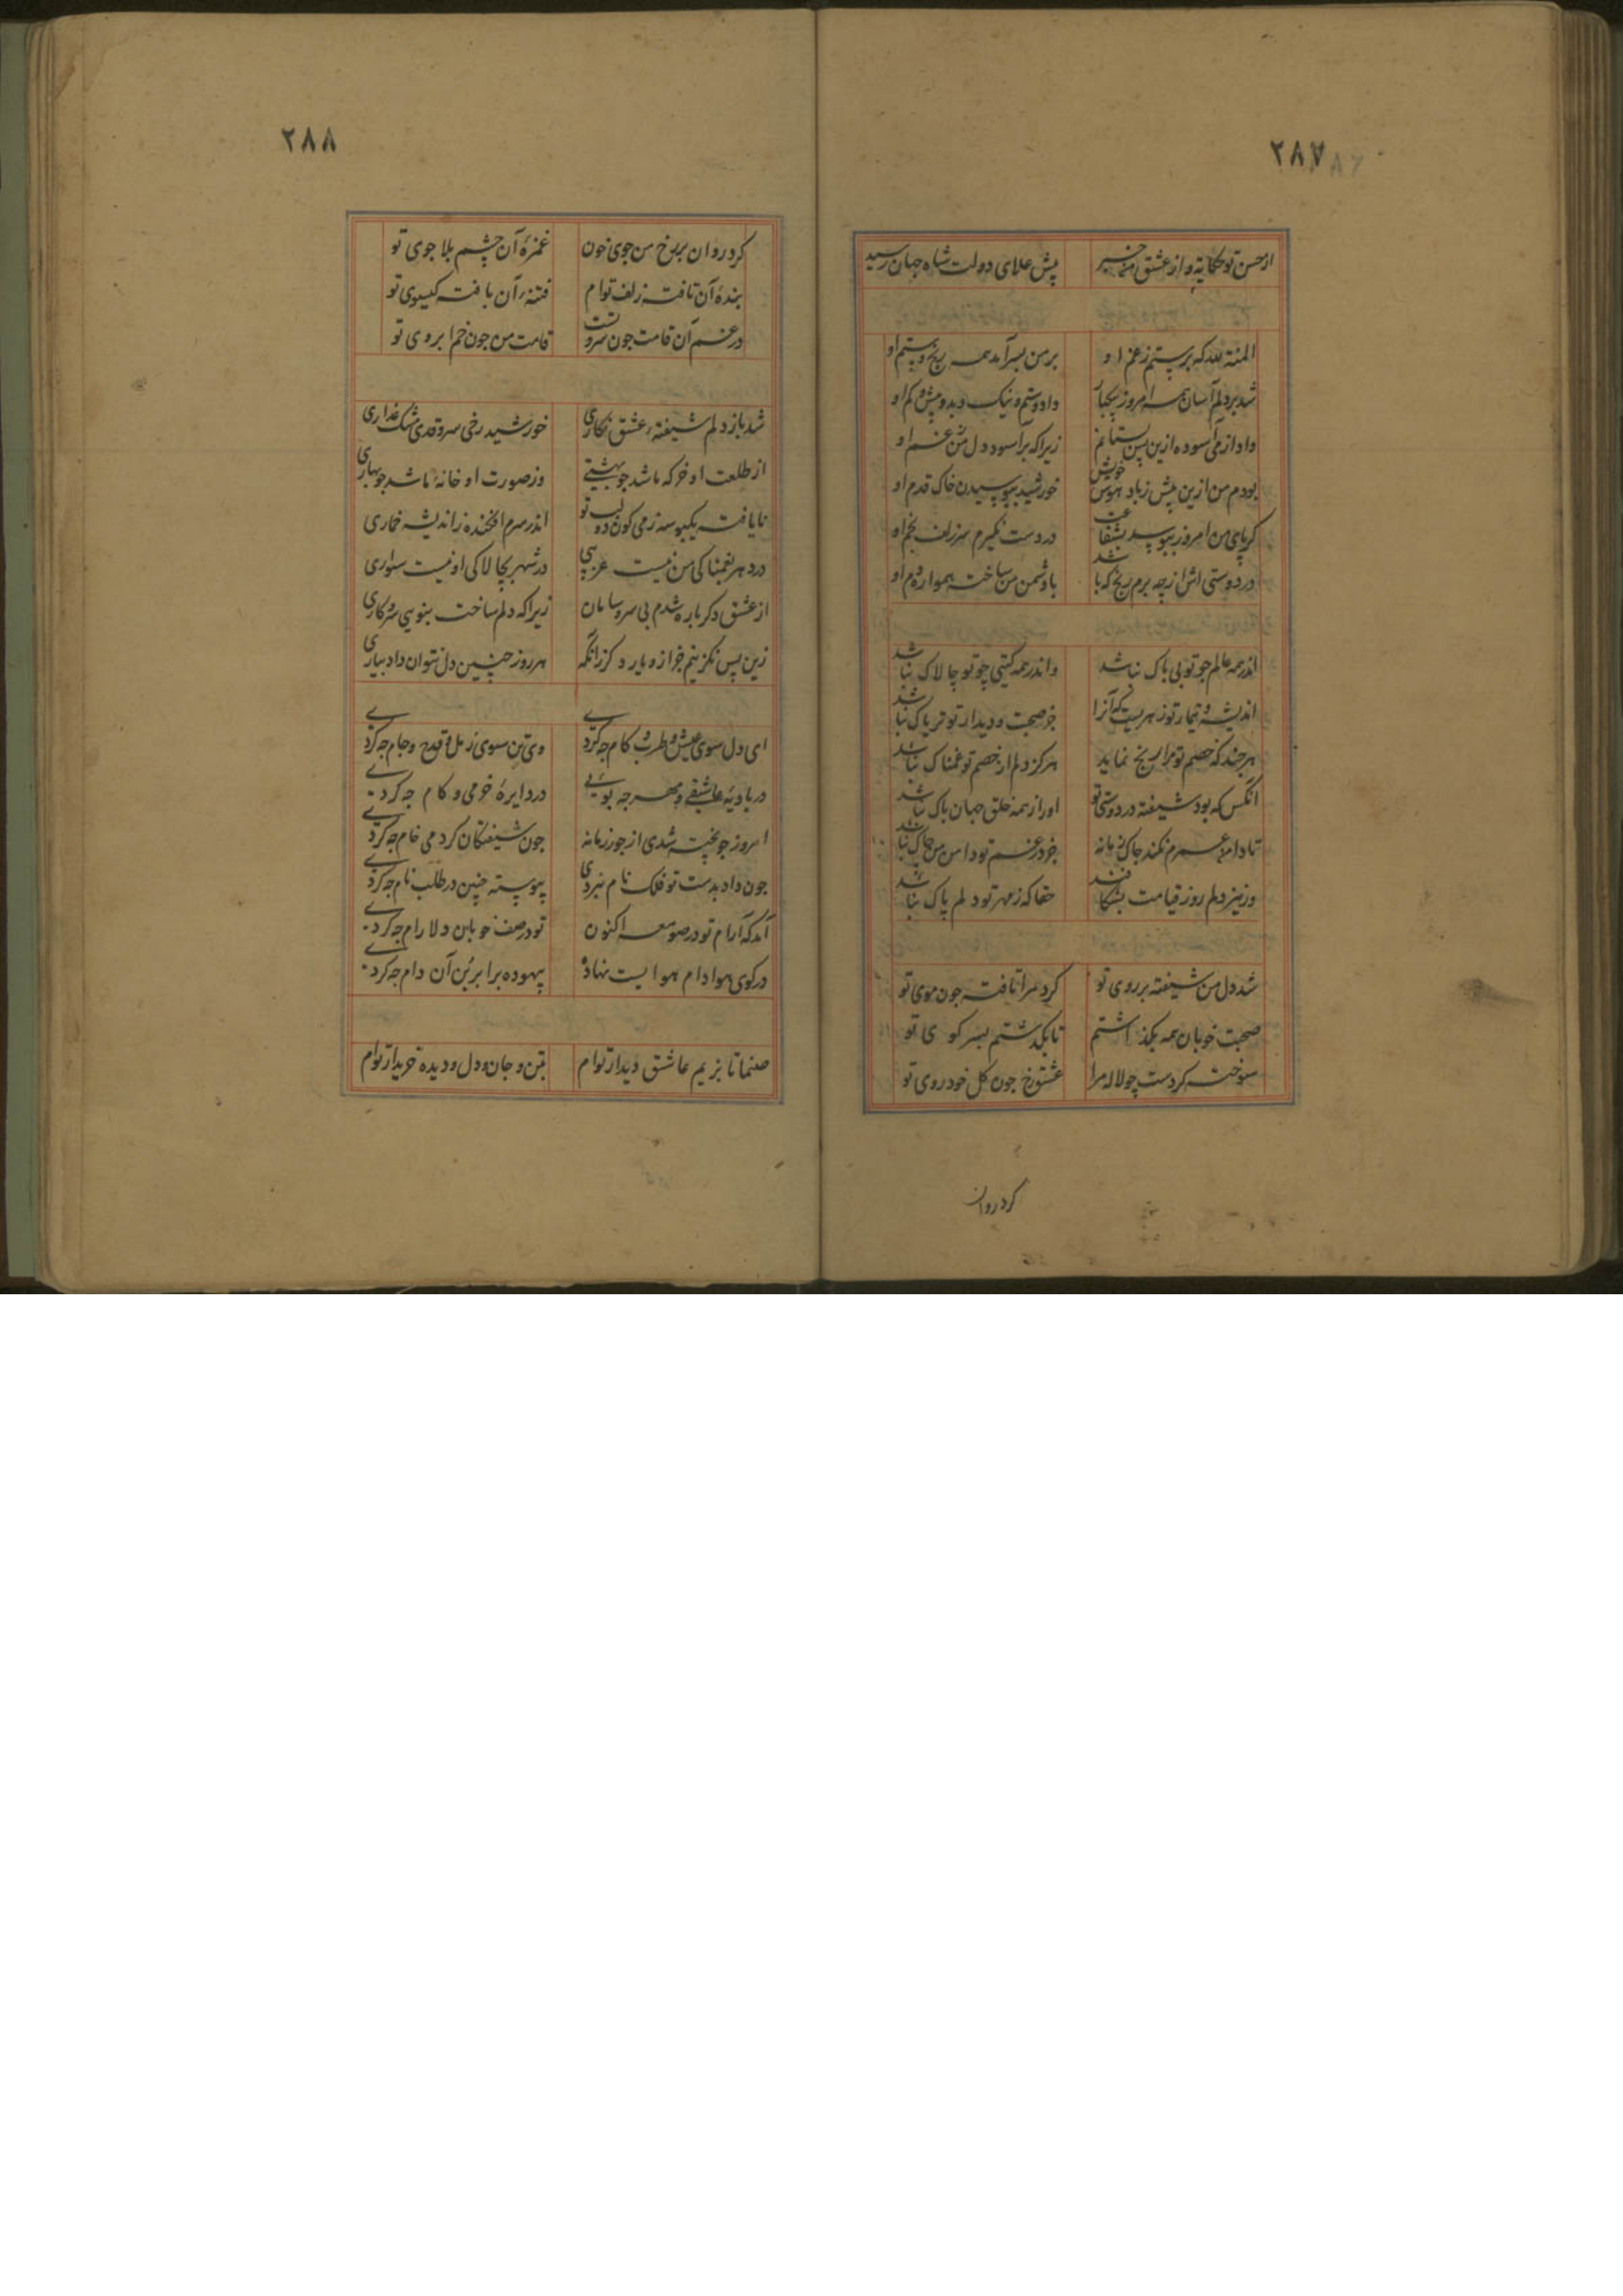 ۲۸۷
از حسن تو حکایة و از عشق من خبر پیش علای دولت شاه جهان رسید
المنة لله که برستم ز غم او بر من بسر آمد همه رنج و ستم او
شد بر دلم آسان همه امروز بیکبار داد و ستم و نیک و بد و بیش و کم او
داد از می آسوده ازین پس بستانم زیرا که برآسود دل من ز غم او
بودم من ازین پیش ز باد هوس خویش خورشید ببوسیدن خاک قدم او
گر پای من امروز ببوسد بشفاعت در دست نگیرم سر زلف بخم او
در دوستی اش از چه برم رنج که باشد با دشمن من ساخته همواره دم او
اندر همه عالم چو تو بی باک نباشد و اندر همه گیتی چو تو چالاک نباشد
اندیشه و تیمار تو زهریست که آنرا جز صحبت و دیدار تو تریاک نباشد
هر چند که خصم تو مرا رنج نماید هرگز دلم از خصم تو غمناک نباشد
آنکس که بود شیفته در دوستی تو او را ز همه خلق جهان باک نباشد
تا دامن عمرم نکند چاک زمانه جز در غم تو دامن من چاک نباشد
ور نیز دلم روز قیامت بشکافند حقا که ز مهر تو دلم پاک نباشد
شد دل من شیفته بر روی تو کرد مرا تافته جون موی تو
صحبت خوبان همه بگذاشتم تا بگذشتم بسر کوی تو
سوخته کردست چو لاله مرا عشق رخ جون کل خودروی تو
کرد روان
۲۸۸
کرد روان بر رخ من جوی خون غمزۀ آن چشم بلا جوی تو
بندۀ آن تافته زلف توام فتنۀ آن بافته کیسوی تو
در غم آن قامت جون سروتست قامت من جون خم ابروی تو
شد باز دلم شیفتۀ عشق نکاری خورشید رخی سرو قدی مشک عذاری
از طلعت او خرکه ما شد جو بهشتی وز صورت او خانۀ ما شد جو بهاری
نایافته یکبوسه ز می کون دو لب تو اندر سرم افکنده ز اندیشه خماری
در دهر بغمناکی من نیست غریبی در شهر بچالاکی او نیست سواری
از عشق دکر باره شدم بی سر و سامان زیرا که دلم ساخت بنویی سر و کاری
زین پس نکزینم جز ازو یار دکر زانکه هر روز چنین دل نتوان داد بیاری
ای دل سوی عیش و طرب و کام چه کردی وی تن سوی رمل و قدح و جام چه کردی
در بادیۀ عاشقی و مهر چه پویی در دایرۀ خرمی و کام چه کردی
امروز جو پخته شدی از جور زمانه جون شیفتکان کرد می خام چه کردی
جون داد بدست تو فلک نام نبردی پیوسته چنین در طلب نام چه کردی
آمد که آرام تو در صومعه اکنون تو در صف خوبان دلارام چه کردی
در کوی هوا دام هوایست نهاده بیهوده برابر بن آن دام چه کردی
صنما تا بزیم عاشق دیدار توام بتن و جان و دل و دیده خریدار توام